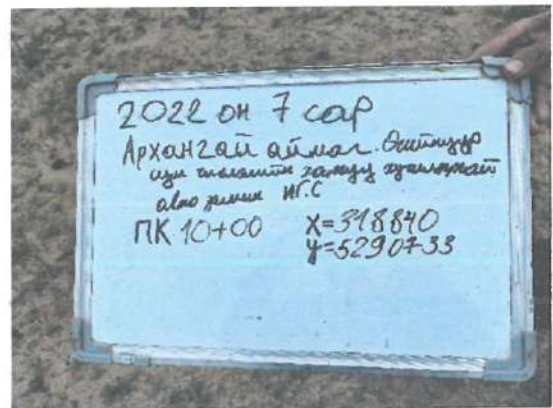 2022 он 7 сар
Архангай аймаг. Өгийнуур
хатуу хучилттай
авто замын ИГС
ПК 10+00 X=318840
y=5290733